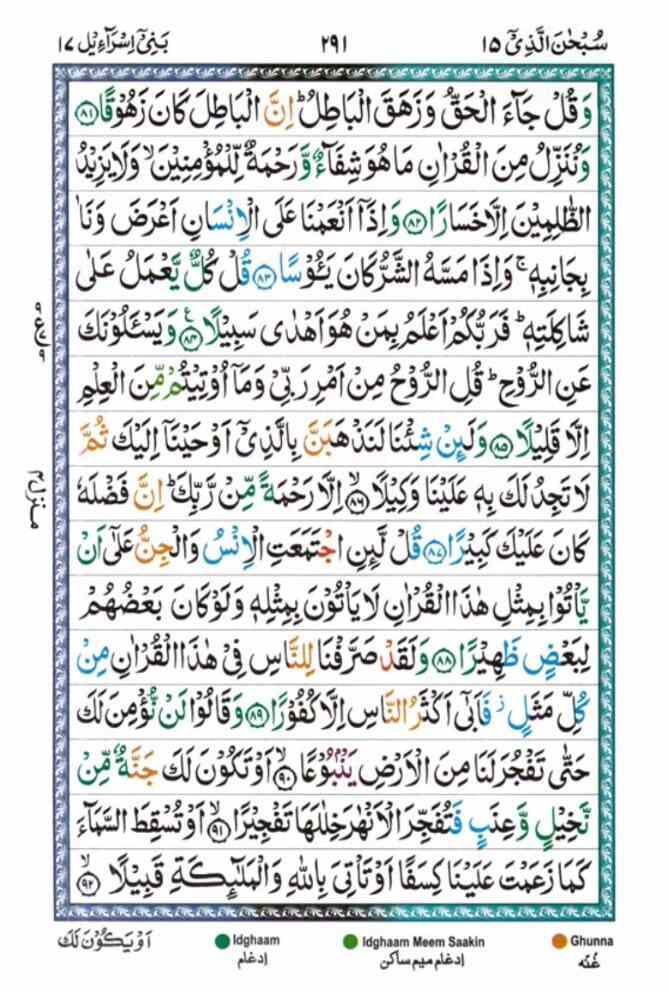 سُبْحٰنَ الَّذِیْۤ ۱۵
۲۹۱
بَنِیْۤ اِسْرَآءِیْل ۱۷
وَقُلْ جَآءَ الْحَقُّ وَزَهَقَ الْبَاطِلُ ؕ اِنَّ الْبَاطِلَ كَانَ زَهُوْقًا ﴿۸۱﴾
وَنُنَزِّلُ مِنَ الْقُرْاٰنِ مَا هُوَ شِفَآءٌ وَّرَحْمَةٌ لِّلْمُؤْمِنِیْنَ ۙ وَلَا یَزِیْدُ
الظّٰلِمِیْنَ اِلَّا خَسَارًا ﴿۸۲﴾ وَاِذَاۤ اَنْعَمْنَا عَلَی الْاِنْسَانِ اَعْرَضَ وَنَاٰ
بِجَانِبِهٖ ۚ وَاِذَا مَسَّهُ الشَّرُّ كَانَ یَـُٔوْسًا ﴿۸۳﴾ قُلْ كُلٌّ یَّعْمَلُ عَلٰی
شَاكِلَتِهٖ ؕ فَرَبُّكُمْ اَعْلَمُ بِمَنْ هُوَ اَهْدٰی سَبِیْلًا ﴿۸۴﴾ ع وَیَسْـَٔلُوْنَكَ
عَنِ الرُّوْحِ ؕ قُلِ الرُّوْحُ مِنْ اَمْرِ رَبِّیْ وَمَاۤ اُوْتِیْتُمْ مِّنَ الْعِلْمِ
اِلَّا قَلِیْلًا ﴿۸۵﴾ وَلَىِٕنْ شِئْنَا لَنَذْهَبَنَّ بِالَّذِیْۤ اَوْحَیْنَاۤ اِلَیْكَ ثُمَّ
لَا تَجِدُ لَكَ بِهٖ عَلَیْنَا وَكِیْلًا ﴿۸۶﴾ۙ اِلَّا رَحْمَةً مِّنْ رَّبِّكَ ؕ اِنَّ فَضْلَهٗ
كَانَ عَلَیْكَ كَبِیْرًا ﴿۸۷﴾ قُلْ لَّىِٕنِ اجْتَمَعَتِ الْاِنْسُ وَالْجِنُّ عَلٰۤی اَنْ
یَّاْتُوْا بِمِثْلِ هٰذَا الْقُرْاٰنِ لَا یَاْتُوْنَ بِمِثْلِهٖ وَلَوْ كَانَ بَعْضُهُمْ
لِبَعْضٍ ظَهِیْرًا ﴿۸۸﴾ وَلَقَدْ صَرَّفْنَا لِلنَّاسِ فِیْ هٰذَا الْقُرْاٰنِ مِنْ
كُلِّ مَثَلٍ ؗ فَاَبٰۤی اَكْثَرُ النَّاسِ اِلَّا كُفُوْرًا ﴿۸۹﴾ وَقَالُوْا لَنْ نُّؤْمِنَ لَكَ
حَتّٰی تَفْجُرَ لَنَا مِنَ الْاَرْضِ یَنْۢبُوْعًا ﴿۹۰﴾ۙ اَوْ تَكُوْنَ لَكَ جَنَّةٌ مِّنْ
نَّخِیْلٍ وَّعِنَبٍ فَتُفَجِّرَ الْاَنْهٰرَ خِلٰلَهَا تَفْجِیْرًا ﴿۹۱﴾ۙ اَوْ تُسْقِطَ السَّمَآءَ
كَمَا زَعَمْتَ عَلَیْنَا كِسَفًا اَوْ تَاْتِیَ بِاللّٰهِ وَالْمَلٰٓىِٕكَةِ قَبِیْلًا ﴿۹۲﴾ۙ
اَوْ یَكُوْنَ لَكَ
Idghaam
اِدغام
Idghaam Meem Saakin
اِدغام میم ساکن
Ghunna
غُنّه
منزل ۴